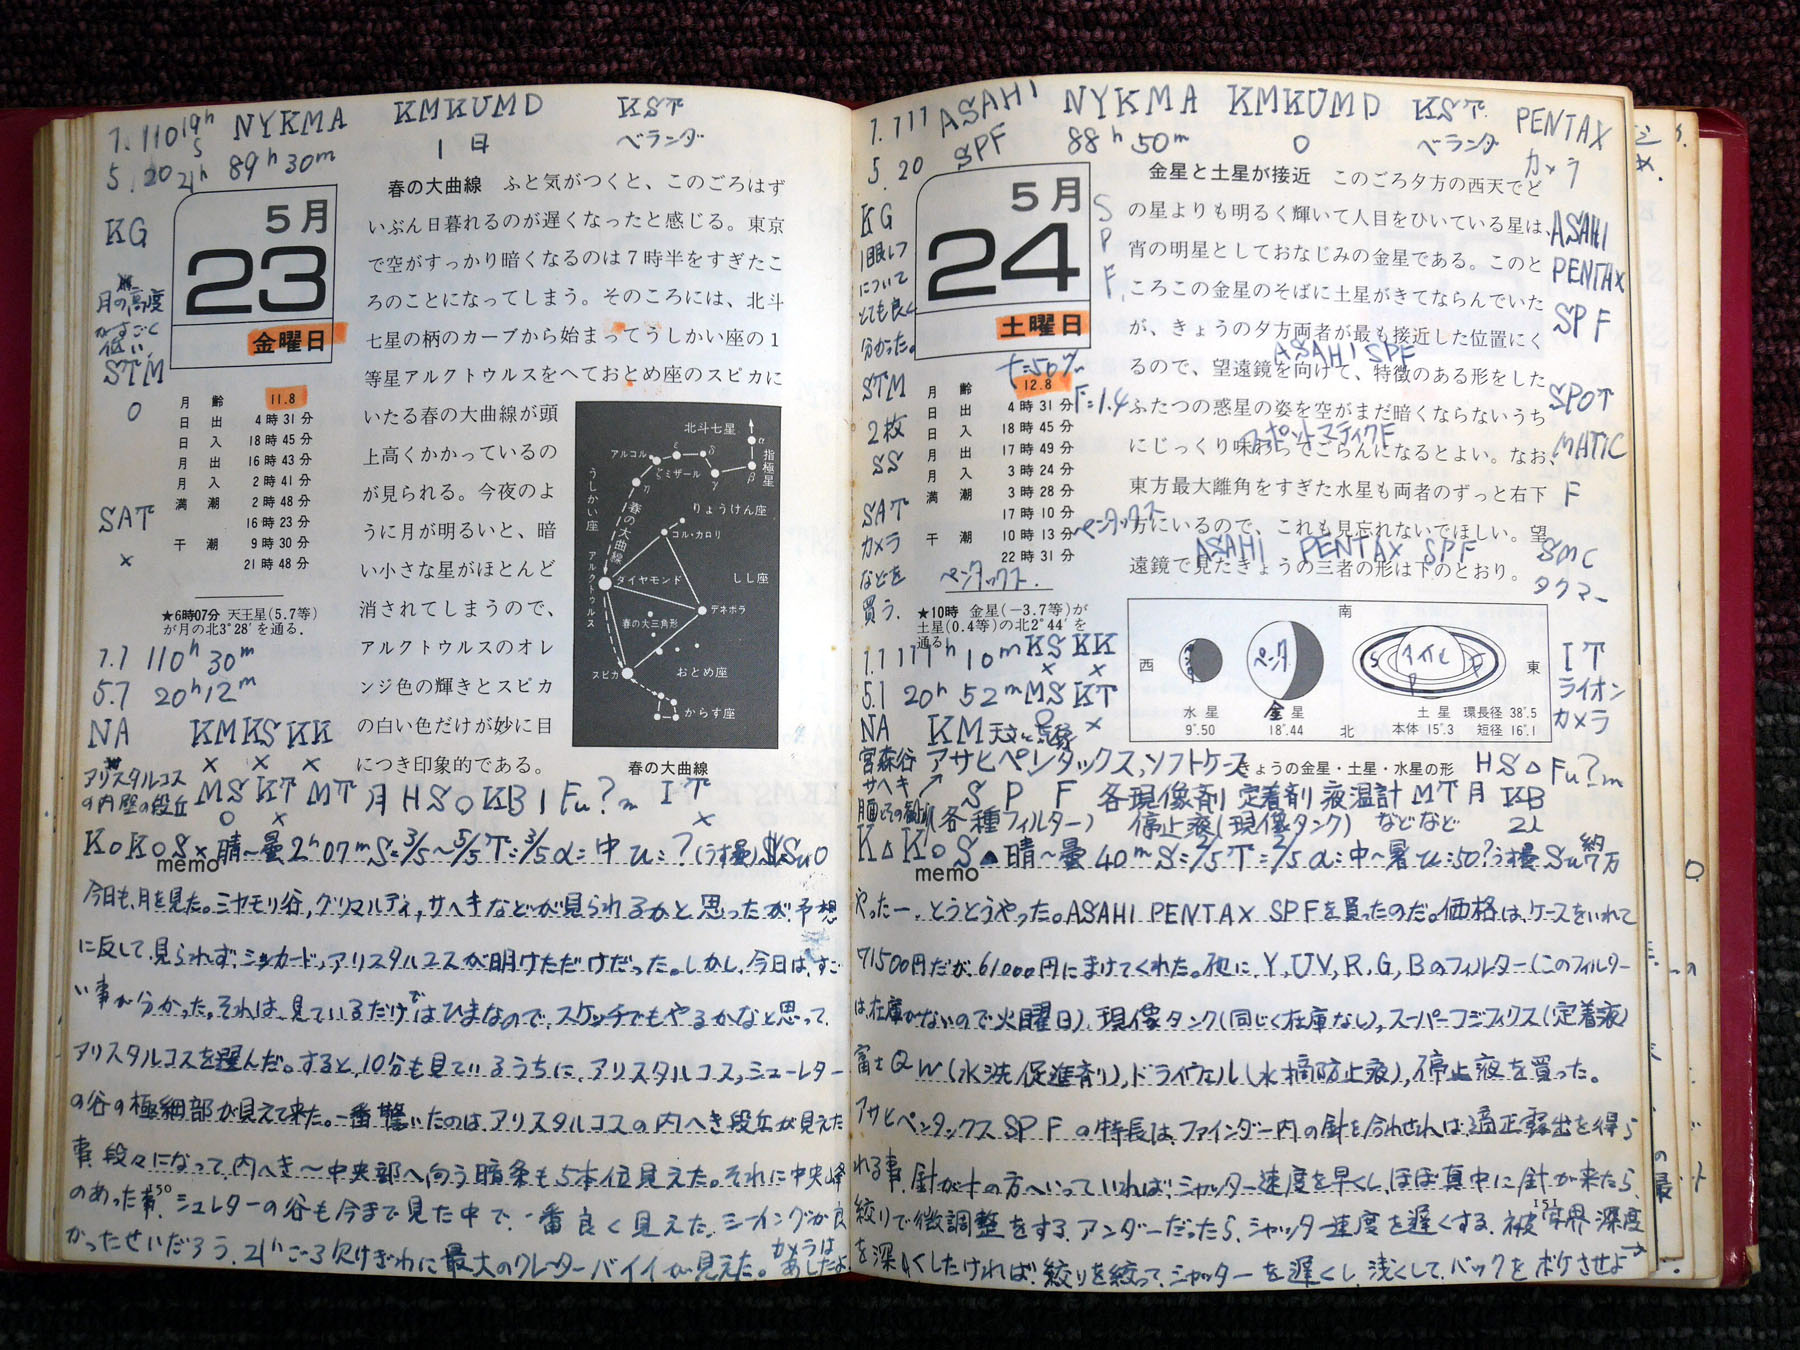 7.110 19h NYKMA KMKUMD KST
5.20 21h 89h30m 1日 ベランダ
5月
23
金曜日
KG
月の高度
がすごく
低い
STM
0
SAT
×
月齢 11.8
日出 4時31分
日入 18時45分
月出 16時43分
月入 2時41分
満潮 2時48分
16時23分
干潮 9時30分
21時48分
★6時07分 天王星(5.7等)
が月の北3°28′を通る.
7.7 110h30m
5.7 20h12m
NA KM KS KK
× × ×
春の大曲線 ふと気がつくと、このごろはず
いぶん日暮れるのが遅くなったと感じる。東京
で空がすっかり暗くなるのは7時半をすぎたこ
ろのことになってしまう。そのころには、北斗
七星の柄のカーブから始まってうしかい座の1
等星アルクトゥルスをへておとめ座のスピカに
いたる春の大曲線が頭
上高くかかっているの
が見られる。今夜のよ
うに月が明るいと、暗
い小さな星がほとんど
消されてしまうので、
アルクトゥルスのオレ
ンジ色の輝きとスピカ
の白い色だけが妙に目
につき印象的である。
北斗七星
指極星
アルコル
ミザール
α
β
γ
δ
ε
ζ
η
うしかい座
春の大曲線
りょうけん座
コル・カロリ
アルクトゥルス
ダイヤモンド
しし座
デネボラ
春の大三角形
スピカ
おとめ座
からす座
春の大曲線
アリスタルコス
の内壁の段丘
MS KT MT 月 HS○ KB1 Fu?m IT
○ × ×
K○K○S× 晴〜曇 2h07m S=3/5〜5/5 T=3/5 α=中 u=?(うす曇)
memo
今日も、月を見た。ミヤモリ谷,グリマルディ,サヘキなどが見られるかと思ったが,予想
に反して,見られず,シッカード,アリスタルコスが明けただけだった。しかし,今日は,すご
い事が分かった。それは,見ているだけではひまなので,スケッチでもやるかなと思って,
アリスタルコスを選んだ。すると,10分も見ているうちに,アリスタルコス,シューレター
の谷の極細部が見えて来た。一番驚いたのはアリスタルコスの内へき段丘が見えた
事,段々になって,内へき〜中央部へ向う暗条も5本位見えた。それに中央峰
のあった事,シュレターの谷も今まで見た中で,一番良く見えた。シーイングが良
かったせいだろう。21hごろ欠けぎわに最大のクレーターバイイが見えた。カメラは
あしたよ
7.711 ASAHI NYKMA KMKUMD KST PENTAX
5.20 SPF 88h50m 0 ベランダ カメラ
5月
24
土曜日
KG
1眼レフ
について
とても良く
分かった。
STM
2枚
SS
SAT
カメラ
などを
買う.
SPF.
F=1.4
月齢 12.8
日出 4時31分
日入 18時45分
月出 17時49分
月入 3時24分
満潮 3時28分
17時10分
干潮 10時13分
22時31分
ペンタックス
★10時 金星(−3.7等)が
土星(0.4等)の北2°44′を
通る
7.7 111h10m KS KK
× ×
5.1 20h52m MS KT
○ ×
NA KM
金星と土星が接近 このごろ夕方の西天でど
の星よりも明るく輝いて人目をひいている星は、
宵の明星としておなじみの金星である。このと
ころこの金星のそばに土星がきてならんでいた
が、きょうの夕方両者が最も接近した位置にく
ASAHI SPF
るので、望遠鏡を向けて、特徴のある形をした
ふたつの惑星の姿を空がまだ暗くならないうち
スポットマティクF
にじっくり味わってごらんになるとよい。なお、
東方最大離角をすぎた水星も両者のずっと右下
ペンタックス
方にいるので、これも見忘れないでほしい。望
ASAHI PENTAX SPF
遠鏡で見たきょうの三者の形は下のとおり。
ASAHI
PENTAX
SPF
SPOT
MATIC
F
SMC
タクマー
IT
ライオン
カメラ
南
西
東
北
ペンタ
水星
9″.50
金星
18″.44
土星
本体 15″.3
環長径 38″.5
短径 16″.1
きょうの金星・土星・水星の形
宮森谷 アサヒペンタックス,ソフトケース HS△ Fu?m
サヘキ SPF 各現像剤 定着剤 液温計 MT 月 KB
各種フィルター) 停止液(現像タンク) などなど 21
K△K○S 晴〜曇 40m S=2/5 T=2/5 α=中〜暑 u=50?うす曇 Su 約7万
memo
やったー,とうとうやった。ASAHI PENTAX SPFを買ったのだ。価格は,ケースをいれて
71500円だが,61000円にまけてくれた。他に,Y,UV,R,G,Bのフィルター(このフィルター
は在庫がないので火曜日),現像タンク(同じく在庫なし),スーパーフジフィクス(定着液)
富士QW(水洗促進剤),ドライウェル(水滴防止液),停止液を買った。
アサヒペンタックスSPFの特長は,ファインダー内の針を合わせれば,適正露出を得ら
れる事,針が+の方へいっていれば,シャッター速度を早くし,ほぼ真中に針が来たら,
絞りで微調整をする.アンダーだったら,シャッター速度を遅くする.被写界深度
を深くしたければ,絞りを絞って,シャッターを遅くし,浅くして,バックをボケさせよ